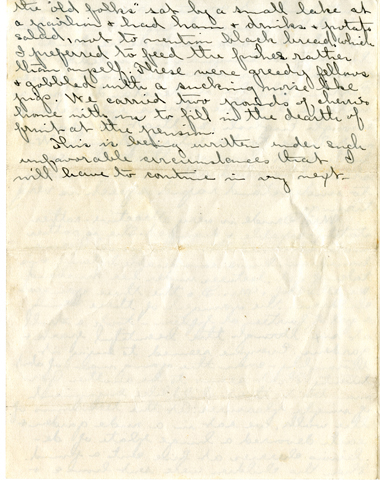 the "old folks" sat by a small lake at
a & had ham & drinks & potato
salad, not to mention black bread which
I preferred to feed the fishes rather
than myself. These were greedy fellows
& gobbled with a sucking noise like
pigs. We carried two pounds of cherries
home with us to fill in the dearth of
fruit at the pension.
This is being written under such
unfavorable circumstances that I
will have to continue in my next.